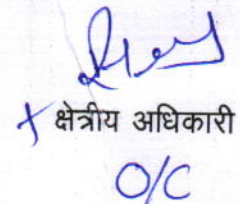 क्षेत्रीय अधिकारी
O/C